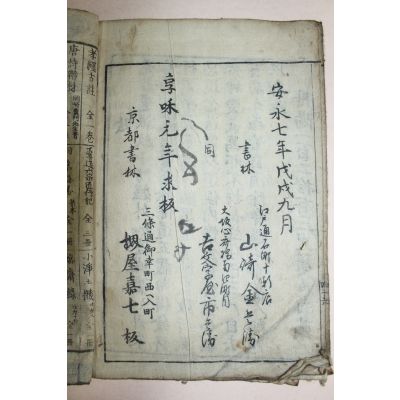 安永七年戊戌九月
江戸通石町十軒店
書林
山崎金兵衛
大坂心斎橋南江壱町目
同
吉文字屋市兵衛
享和元年求板
三條通御幸町西入町
京都書林
梶屋嘉七板
孝經古註 全一巻
全三冊
唐詩